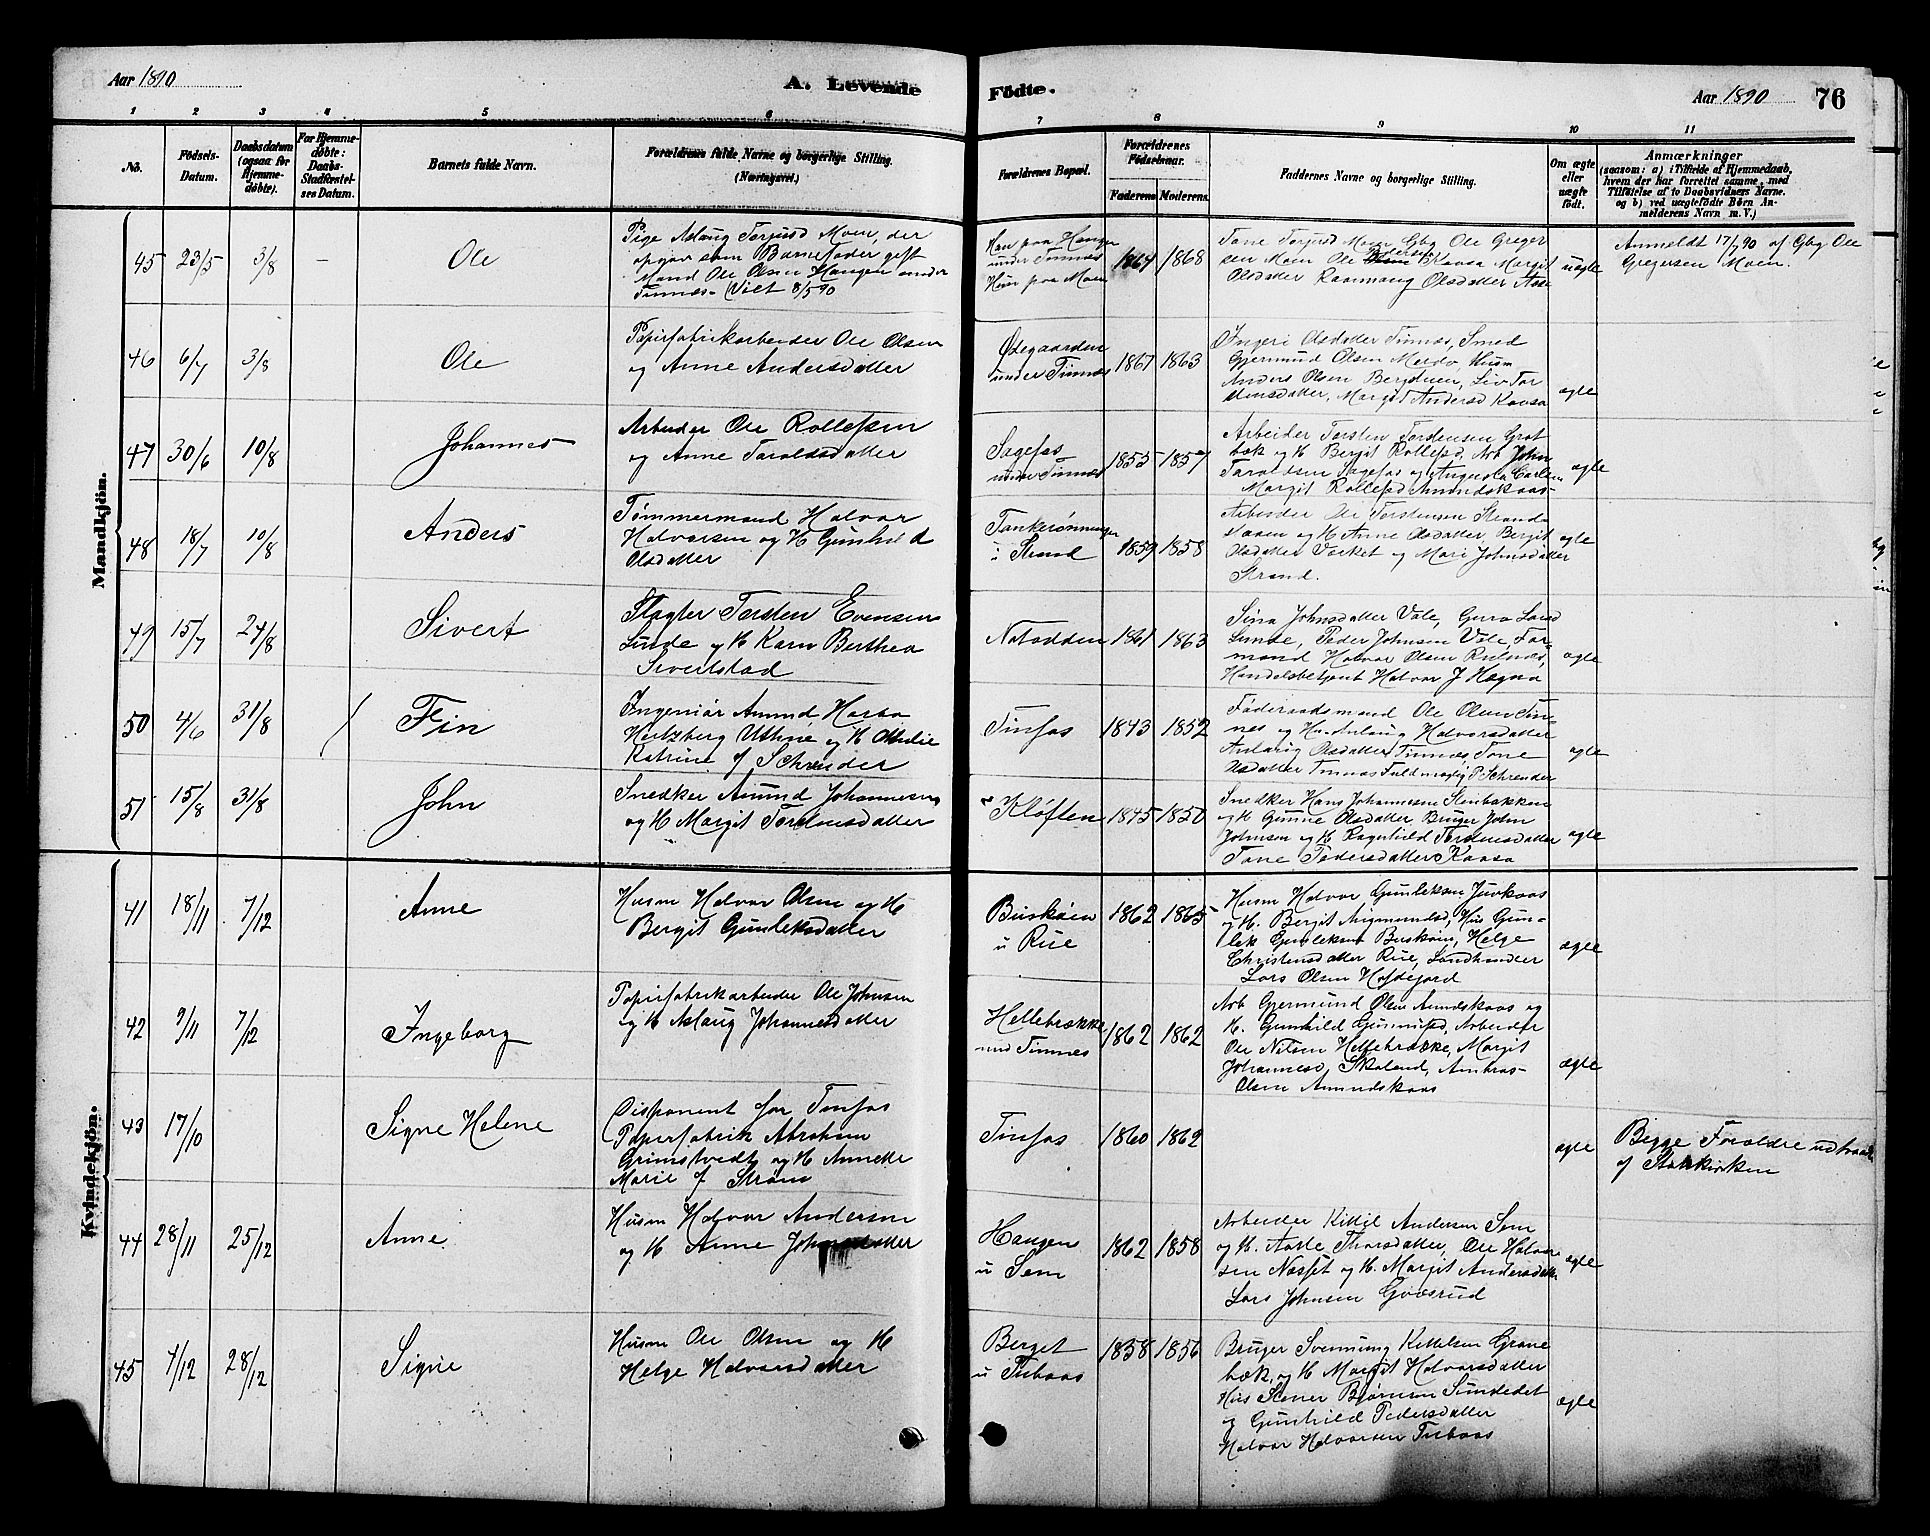 Aar 1890
A. Levende
Fødte.
Aar 1890
76
1 2 3 4 5 6 7 8 9 10 11
No.
Fødsels-Datum.
Daabsdatum (ogsaa for Hjemmedøbte).
For Hjemmedøbte: Daabs-Stadfæstelses Datum.
Barnets fulde Navn.
Forældrenes fulde Navne og borgerlige Stilling. (Næringsvei.)
Forældrenes Bopæl.
Forældrenes Fødselsaar.
Faderens Moderens
Faddernes Navne og borgerlige Stilling.
Om ægte eller uægte født.
Anmærkninger
(saasom: a) i Tilfælde af Hjemmedaab,
hvem der har forrettet samme, med
Tilføielse af to Daabsvidners Navne.
og b) ved uægtefødte Børn An-
melderens Navn m. V.)
Mandkjøn.
45 23/5 3/8 – Ole
Pige Aslaug Torjusd Moen, der
opgav som Barnefader gift
Mand Ole Olsen Haugen under
Tinnæs. (Viet 8/5 90
Han paa Haugen
under Tinnæs
Hun paa Moen
1864 1868
Tone Torjusd Moen Gbg Ole Greger
sen Moen Ole Kaasa Margit
Olsdatter Olsdatter
uægte
Anmeldt 17/7 90 af Gbg Ole
Gregersen Moen.
46 6/7 3/8 Ole
Papirfabrikarbeider Ole Olsen
og Anne Andersdatter
Ødegaarden
under Tinnæs
1867 1863
Ingeri Olsdatter Tinnæs, Smed
Gjermund Olsen Husm
Anders Olsen Liv Tor
stensdatter, Margit Andersd Kaasa
ægte
47 30/6 10/8 Johannes
Arbeider Ole Rollefsen
og Anne Taraldsdatter
Sagefos
under Tinnæs
1855 1857
Arbeider Torsten Torstensen Grot
bæk og H Bergit Rollefsd, Arb John
Taraldsen Sagefos og Augusta Carlsen
Margit Rollefsd Amundskaas
ægte
48 18/7 10/8 Anders
Tømmermand Halvar
Halvorsen og H Gunhild
Olsdatter
Tankerønningen
i Strand
1859 1858
Arbeider Ole Torstensen Strand-
moen og H Anne Olsdatter, Bergit
Olsdatter og Mari Johnsdatter
Strand.
ægte
49 15/7 24/8 Sivert
Slagter Torsten Evensen
Sunde og H Karn Berthea
Sivertstad
Notodden
1861 1863
Sina Johnsdatter Vale, Gurro Larsd
Sunde, Peder Johnsen Vale, For-
mand Halvor Olsen
Handelsbetjent Halvor J Hægna
ægte
50 4/6 31/8 Fin
Ingeniør Amund Horbo
Hertzberg Uthne og H Othilie
Katrine f Schrøder
Tinfos
1843 1852
Føderaadsmand Ole Olsen Tin-
nes og H Halvorsdatter
Olsdatter Tinnes, Tone
Olsdatter Tinnes Fuldmægtig P Schrøder
ægte
51 15/8 31/8 John
Snedker Amund Johannesen
og H Margit Torstensdatter
Kløften
1845 1850
Snedker Hans Johannesen Stenbakken
og H Gunne Olsdatter Bruger John
Johnsen og H Ragnhild Torstensdatter
Tone Pedersdatter Kaasa
ægte
Kvindekjøn.
41 18/11 7/12 Anne
Husm Halvor Olsen og H
Bergit Gunleksdatter
Buskøin
u Rue
1862 1865
Husm Halvor Gunleksen Juvkaas
og H. Bergit Aigmundsd, Hus Gun-
lek Gunleksen Buskøin, Helge
Christensdatter Rue, Landhandler
Lars Olsen Hofdejord
ægte
42 9/11 7/12 Ingeborg
Papirfabrikarbeider Ole Johnsen
og H Aslaug Johannesdatter
Hellebrække
und Tinnes
1862 1862
Arb Gjermund Olsen Amundskaas og
H. Gunhild Gunnulfsd, Arbeider
Ole Nilsen Hellebrække, Margit
Johannesd, Skoland, Ambros
Olsen Amundskaas
ægte
43 17/10 Signe Helene
Disponent for Tinfos
Papirfabrik Abraham
Grimstvedt og H Annette
Marie f Strøm
Tinfos
1860 1862
ægte
Begge Forældre udtraadt
af Statskirken
44 28/11 25/12 Anne
Husm Halvor Andersen
og H Anne Johnsdatter
Haugen
u Sem
1862 1858
Arbeider Kittil Andersen Sem
og H. Aaste Thorsdatter, Ole Halvor
sen Næsset og H. Margit Andersdatter
Lars Johnsen Gaasrud
ægte
45 1/12 28/12 Signe
Husm Ole Olsen og H
Helge Halvorsdatter
Berget
u Tveraas
1858 1856
Bruger Svennung Kittelsen Grane
bæk, og H Margit Halvorsdatter
Hus Stener Bjørnsen Sundedet
og Gunhild Pedersdatter
Halvor Halvorsen
ægte